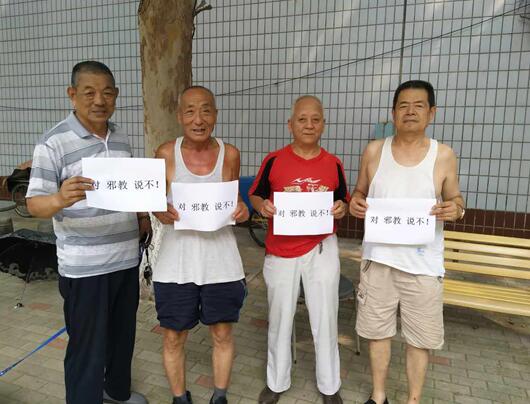 对 邪教 说不！
对 邪教 说不！
对 邪教 说不！
对 邪教 说不！